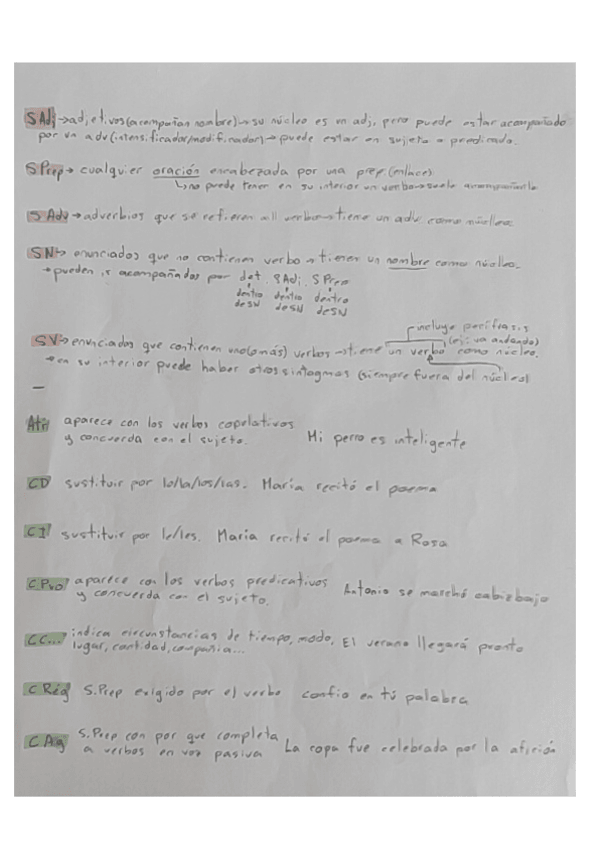 SAdj → adjetivos (acompañan nombre) → su núcleo es un adj, pero puede estar acompañado
por un adv (intensificador/modificador) → puede estar en sujeto o predicado.
SPrep → cualquier oración encabezada por una prep (enlace)
↳ no puede tener en su interior un verbo → suele acompañarle
SAdv → adverbios que se refieren al verbo → tiene un adv como núcleo
SN → enunciados que no contienen verbo → tienen un nombre como núcleo.
→ pueden ir acompañados por det, SAdj, SPrep
dentro dentro dentro
de SN de SN de SN
incluye perífrasis
(ej: va andando)
SV → enunciados que contienen uno (o más) verbos → tiene un verbo como núcleo.
→ en su interior puede haber otros sintagmas (siempre fuera del núcleo)
Atr aparece con los verbos copulativos
y concuerda con el sujeto. Mi perro es inteligente
CD sustituir por lo/la/los/las. María recitó el poema
CI sustituir por le/les. María recitó el poema a Rosa
C Pvo aparece con los verbos predicativos
y concuerda con el sujeto. Antonio se marchó cabizbajo
CC... indica circunstancias de tiempo, modo, El verano llegará pronto
lugar, cantidad, compañia...
C Rég S.Prep exigido por el verbo confio en tú palabra
C Ag S.Prep con por que completa
a verbos en voz pasiva La copa fue celebrada por la afición